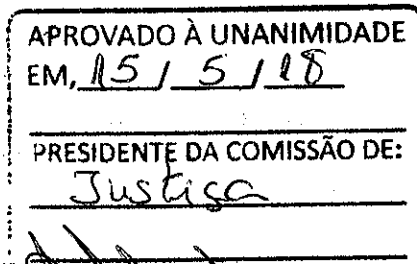 APROVADO À UNANIMIDADE
EM, 15 / 5 / 18
PRESIDENTE DA COMISSÃO DE:
Justiça